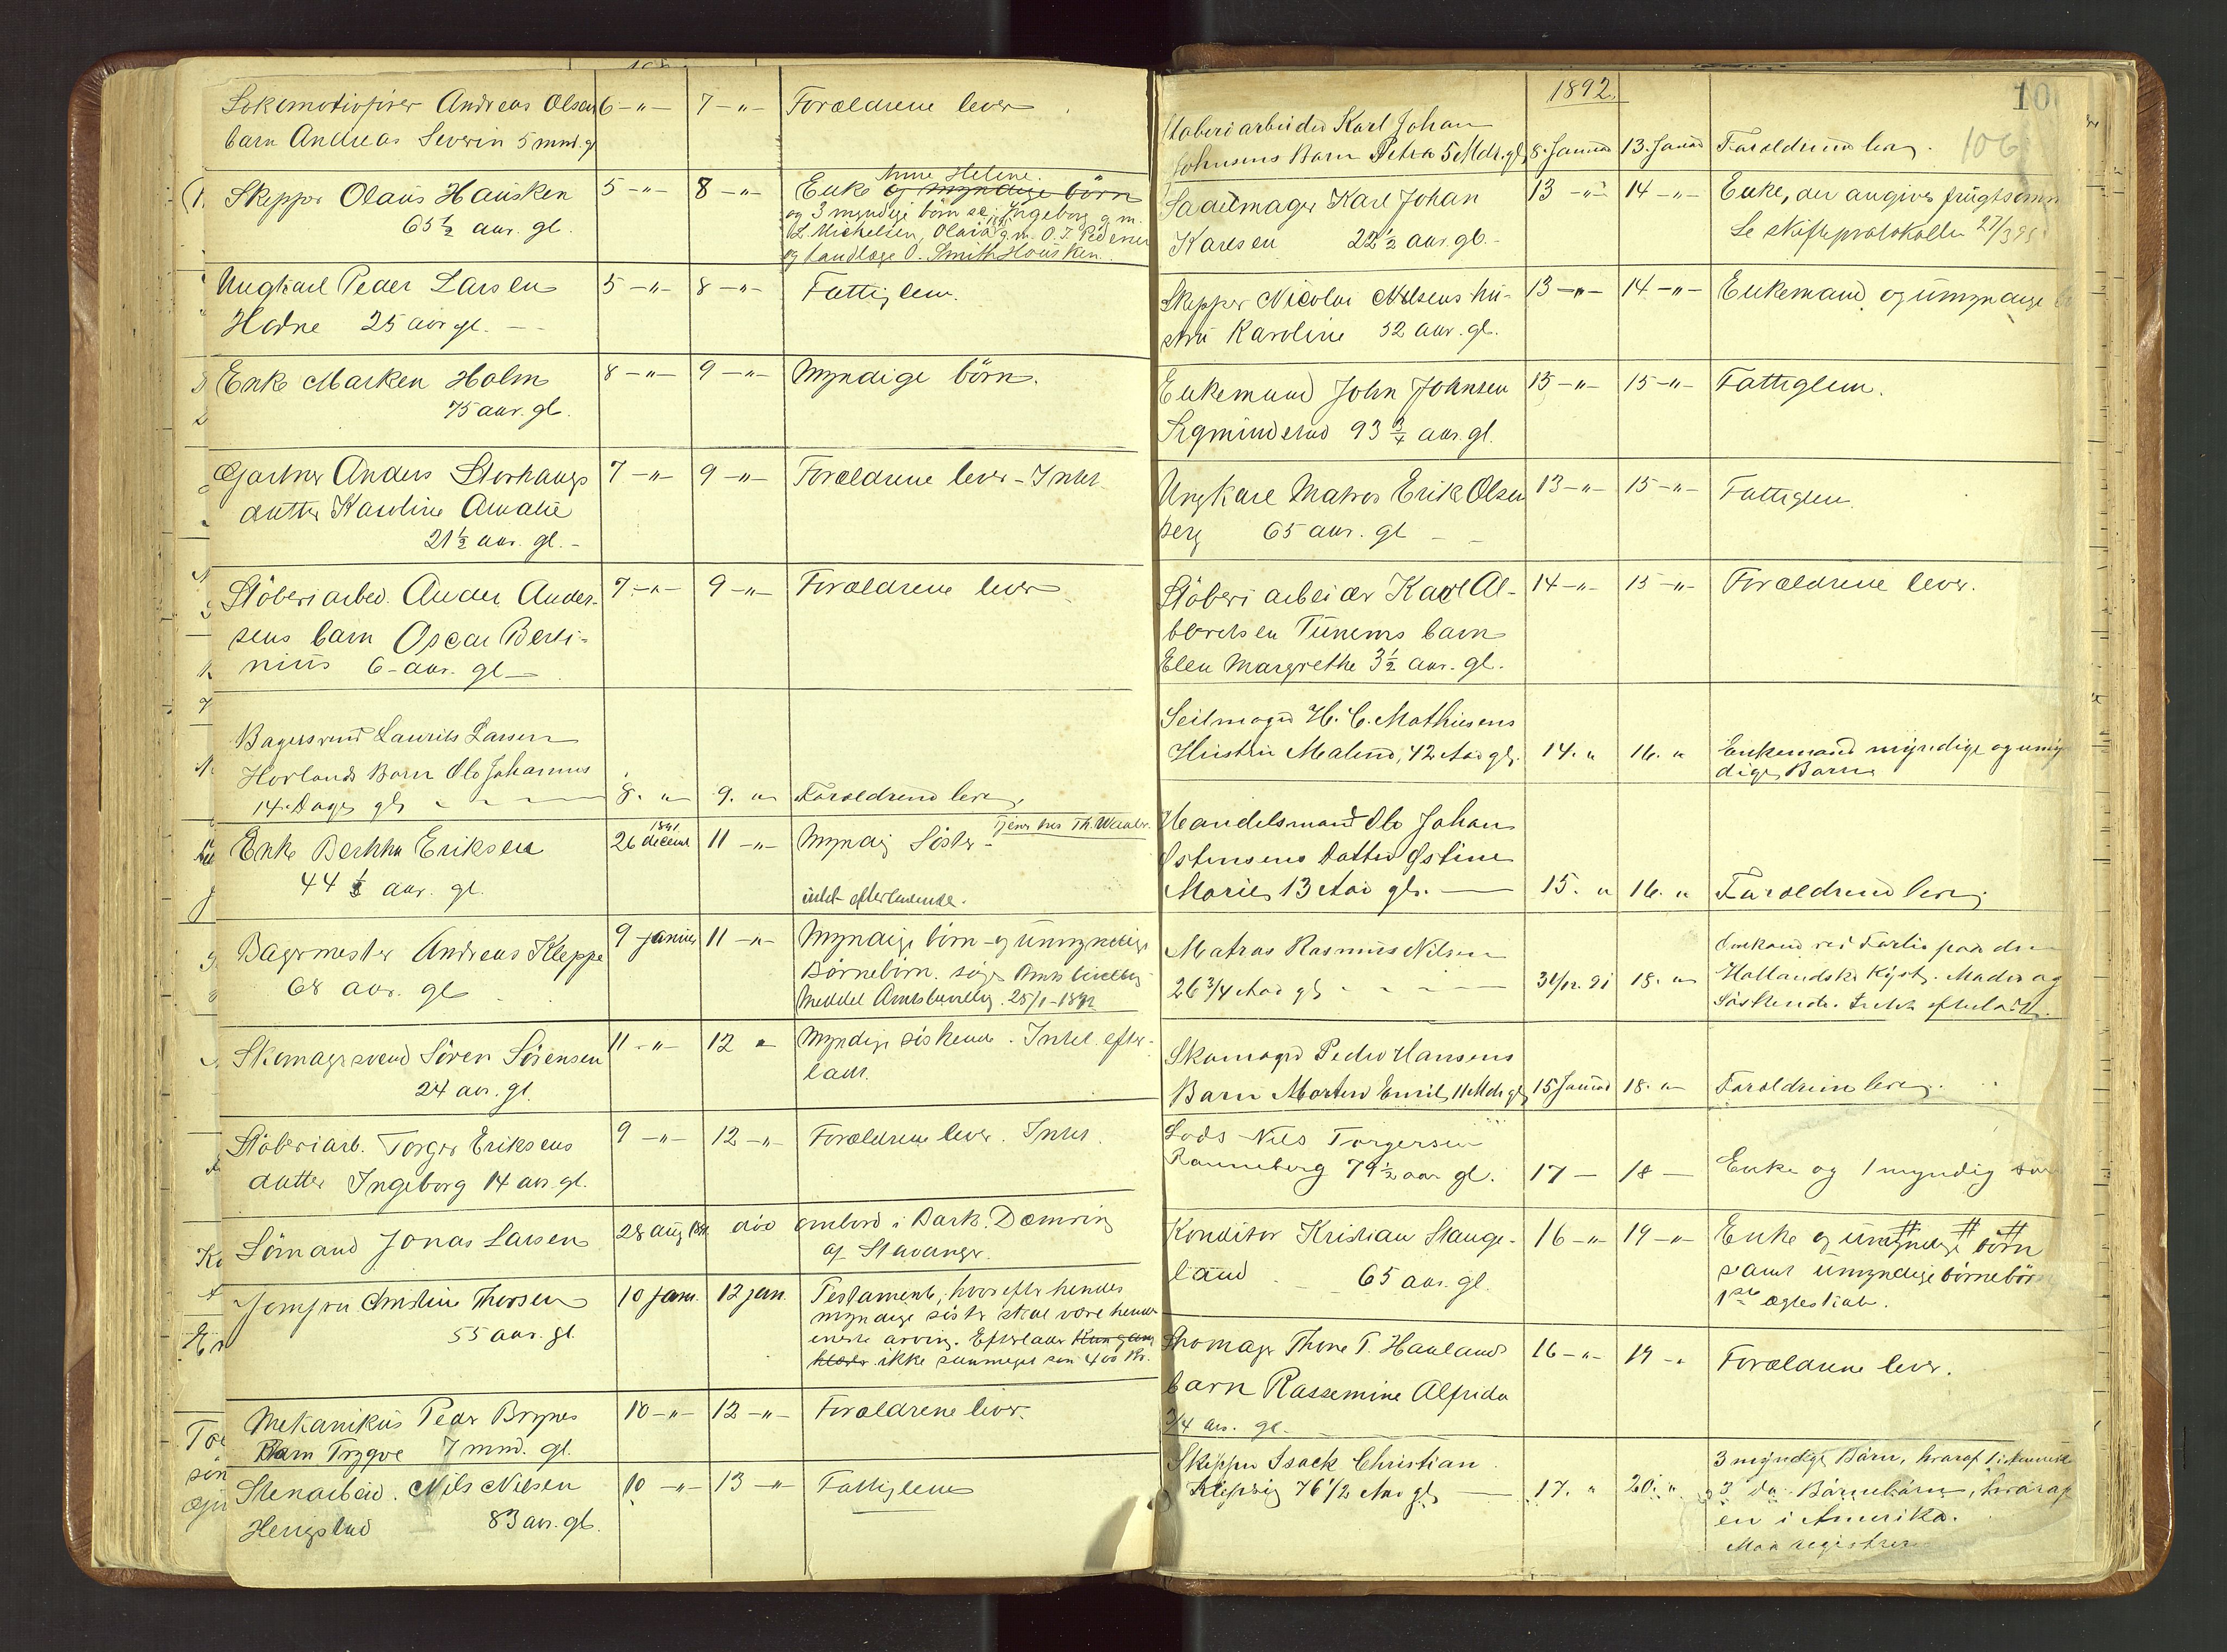 Lokomotivfirer Andreas Olsen 6 -"- 7 -"- Forældrene lever
barn Andreas Severin 5 mnd. g
Skipper Olaus Hausken 5 -"- 8 -"- Enke og myndige börn
Anne Helene.
65 1/2 aar. gl.
og 3 myndige börn se; Ingeborg g. m.
L. Michelsen, Olava g. m. O. T. Pedersen
og landlæge O. Smith Housken.
Ungkarl Peder Larsen 5 -"- 8 -"- Fattiglem.
Hodne 25 aar gl.
Enke Marken Holm 8 -"- 9 -"- Myndige börn.
75 aar. gl.
Gartner Anders Storhaugs 7 -"- 9 -"- Forældrene lever - Intet
datter Karoline Amalie
21 1/2 aar. gl. -
Stöberiarbeid. Ander Ander- 7 -"- 9 -"- Forældrene lever
sens barn Oscar Berti-
nius 6 - aar. gl
Bagersvend Laurits Larsen
Horlands Barn Ole Johannes
14. Dage gl. 8. " 9. " Forældrene lever
Enke Berthe Eriksen 26 decemb 1891 11 -"- Myndig Söster - tjener hos Th.
44 1/2 aar. gl. intet efterladende.
Bagermester Andreas Kleppe 9 januar 11 -"- Myndige börn og umyndige
68 aar. gl Börnebörn. söger Amts bevilling
Meddelt Amtsbevilling. 25/1-1892
Skomagersvend Sören Sörensen 11 -"- 12 " Myndige söskende. Intet efter-
24 aar. gl. ladt.
Stöberiarb. Torger Eriksens 9 -"- 12 -"- Forældrene lever. Intet.
datter Ingeborg 14 aar. gl.
Sömand Jonas Larsen 28 aug 1891 död ombord i Bark. Dæmring
af Stavanger.
Jomfru Christine Thorsen 10 janr. 12 jan. Testament, hvorefter hendes
55 aar. gl. myndige söster skal være hendes
eneste arving. Efterlader kun gang
klæder ikke saameget som 400 Kr.
Mekanikus Peder Brynes 10 -"- 12 -"- Forældrene lever.
Barn Trygve 7 mnd. gl.
Stenarbeid. Nils Nilsen 10 -"- 13 -"- Fattiglem
Hengstad 83 aar. gl.
1892.
10
106
Støberiarbeider Karl Johan
Johnsens Barn Petra 5 Mdr. gl. 8. Januar 13. Januar Forældrene lever.
Sadelmager Karl Johan 13 -"- 14 -"- Enke, der angives frugtsommelig
Karlsen 22 1/2 aar. gl. - Se skifteprotokollen
Skipper Nicolai Nilsens hu- 13 -"- 14 -"- Enkemand og umyndige
stru Karoline 52 aar. gl.
Enkemand John Johnsen 13 -"- 15 -"- Fattiglem.
Sigmundstad 93 3/4 aar. gl.
Ungkarl Matros Erik Olsen 13 -"- 15 -"- Fattiglem.
Berg 65 aar. gl
Stöberiarbeider Karl Al- 14 -"- 15 -"- Forældrene lever.
bertsen Tunems barn
Elen Margrethe 3 1/2 aar. gl.
Seilmager H. C. Mathiesens
Hustru Malene, 42 Aar gl. 14. " 16. " Enkemand myndige og umyn-
dige Børn
Handelsmand Ole Johan
Østensens Datter Østine
Marie, 13 Aar gl. 15. " 16. " Forældrene lever.
Matros Rasmus Nilsen Omkom ved Forlis paa den
26 3/4 Aar gl. 31/12. 91 18. " Hollandske Kyst. Moder og
Søskende. Intet efterladt.
Skomager Peder Hansens
Barn Morten Emil, 11 Mdr. gl. 15 Januar 18. " Forældrene lever.
Lods Nils Torgersen
Ranneberg 79 1/2 aar gl. 17 — 18 — Enke og 1 myndig søn
Konditor Kristian Stange- 16 -"- 19 -"- Enke og umyndige börn
land 65 aar. gl. samt umyndige börnebörn
1ste ægteskab.
Skomager Thore T. Haaland 16 -"- 19 -" Forældrene lever.
barn Rassemine Alfrida
3/4 aar. gl.
Skipper Isack Christian 3 myndige Børn, hvoraf
Kleppsig 76 1/2 Aar gl. 17. " 20. " 3 do. Børnebørn, hvoraf
en i Amerika.
Maa registrer